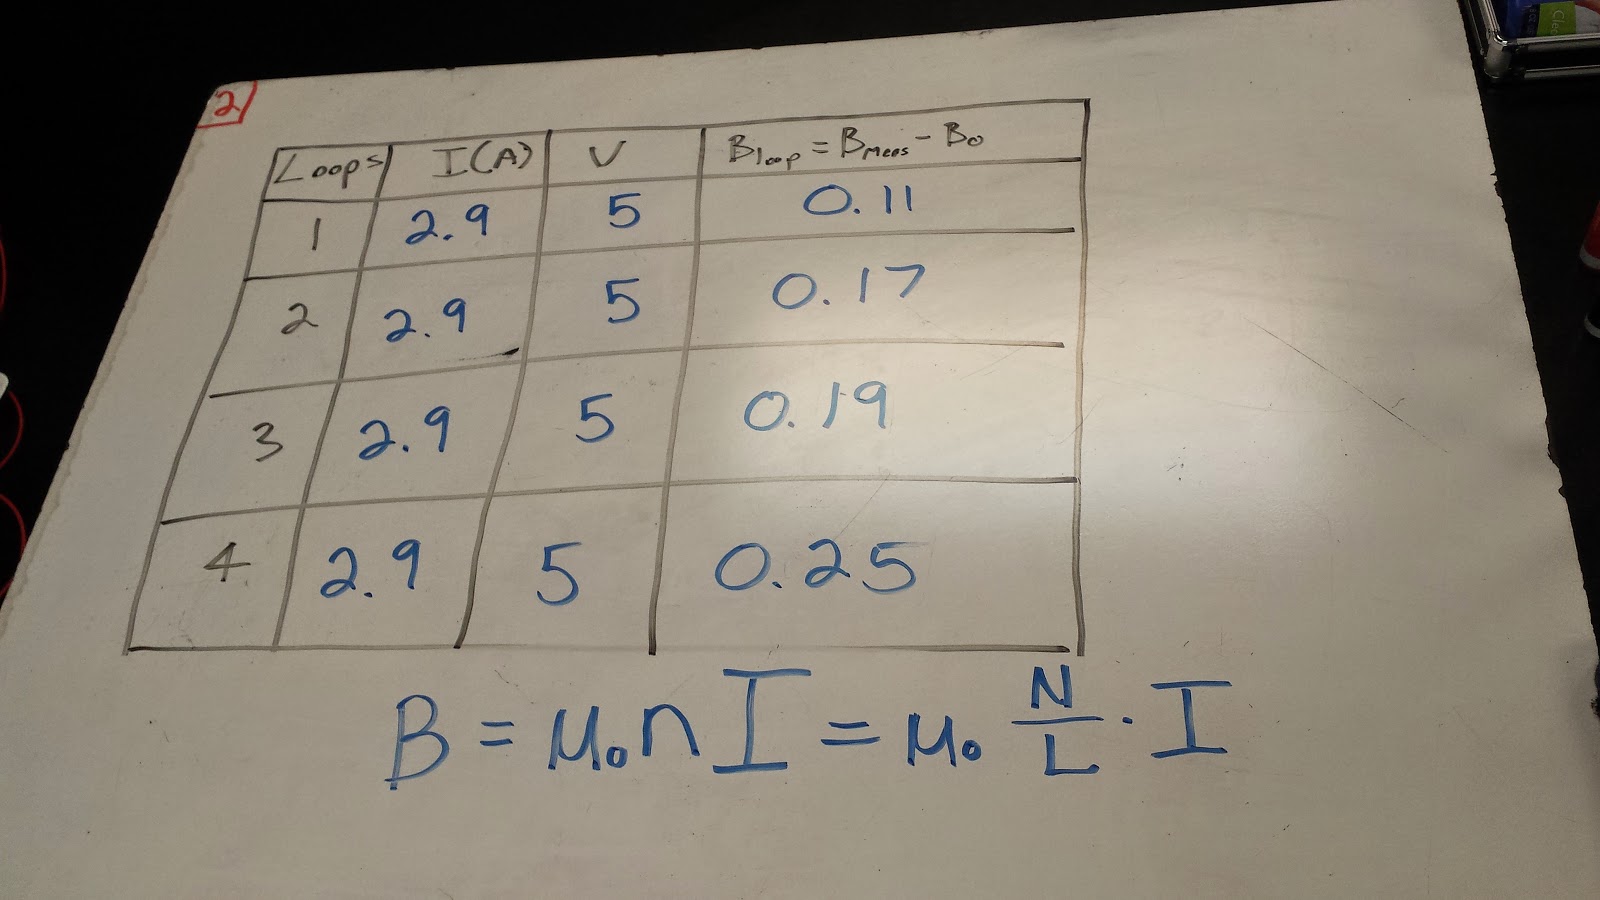 2
Loops I(A) V B_loop = B_Meas - B_0
1 2.9 5 0.11
2 2.9 5 0.17
3 2.9 5 0.19
4 2.9 5 0.25
B = μ₀nI = μ₀ N/L · I